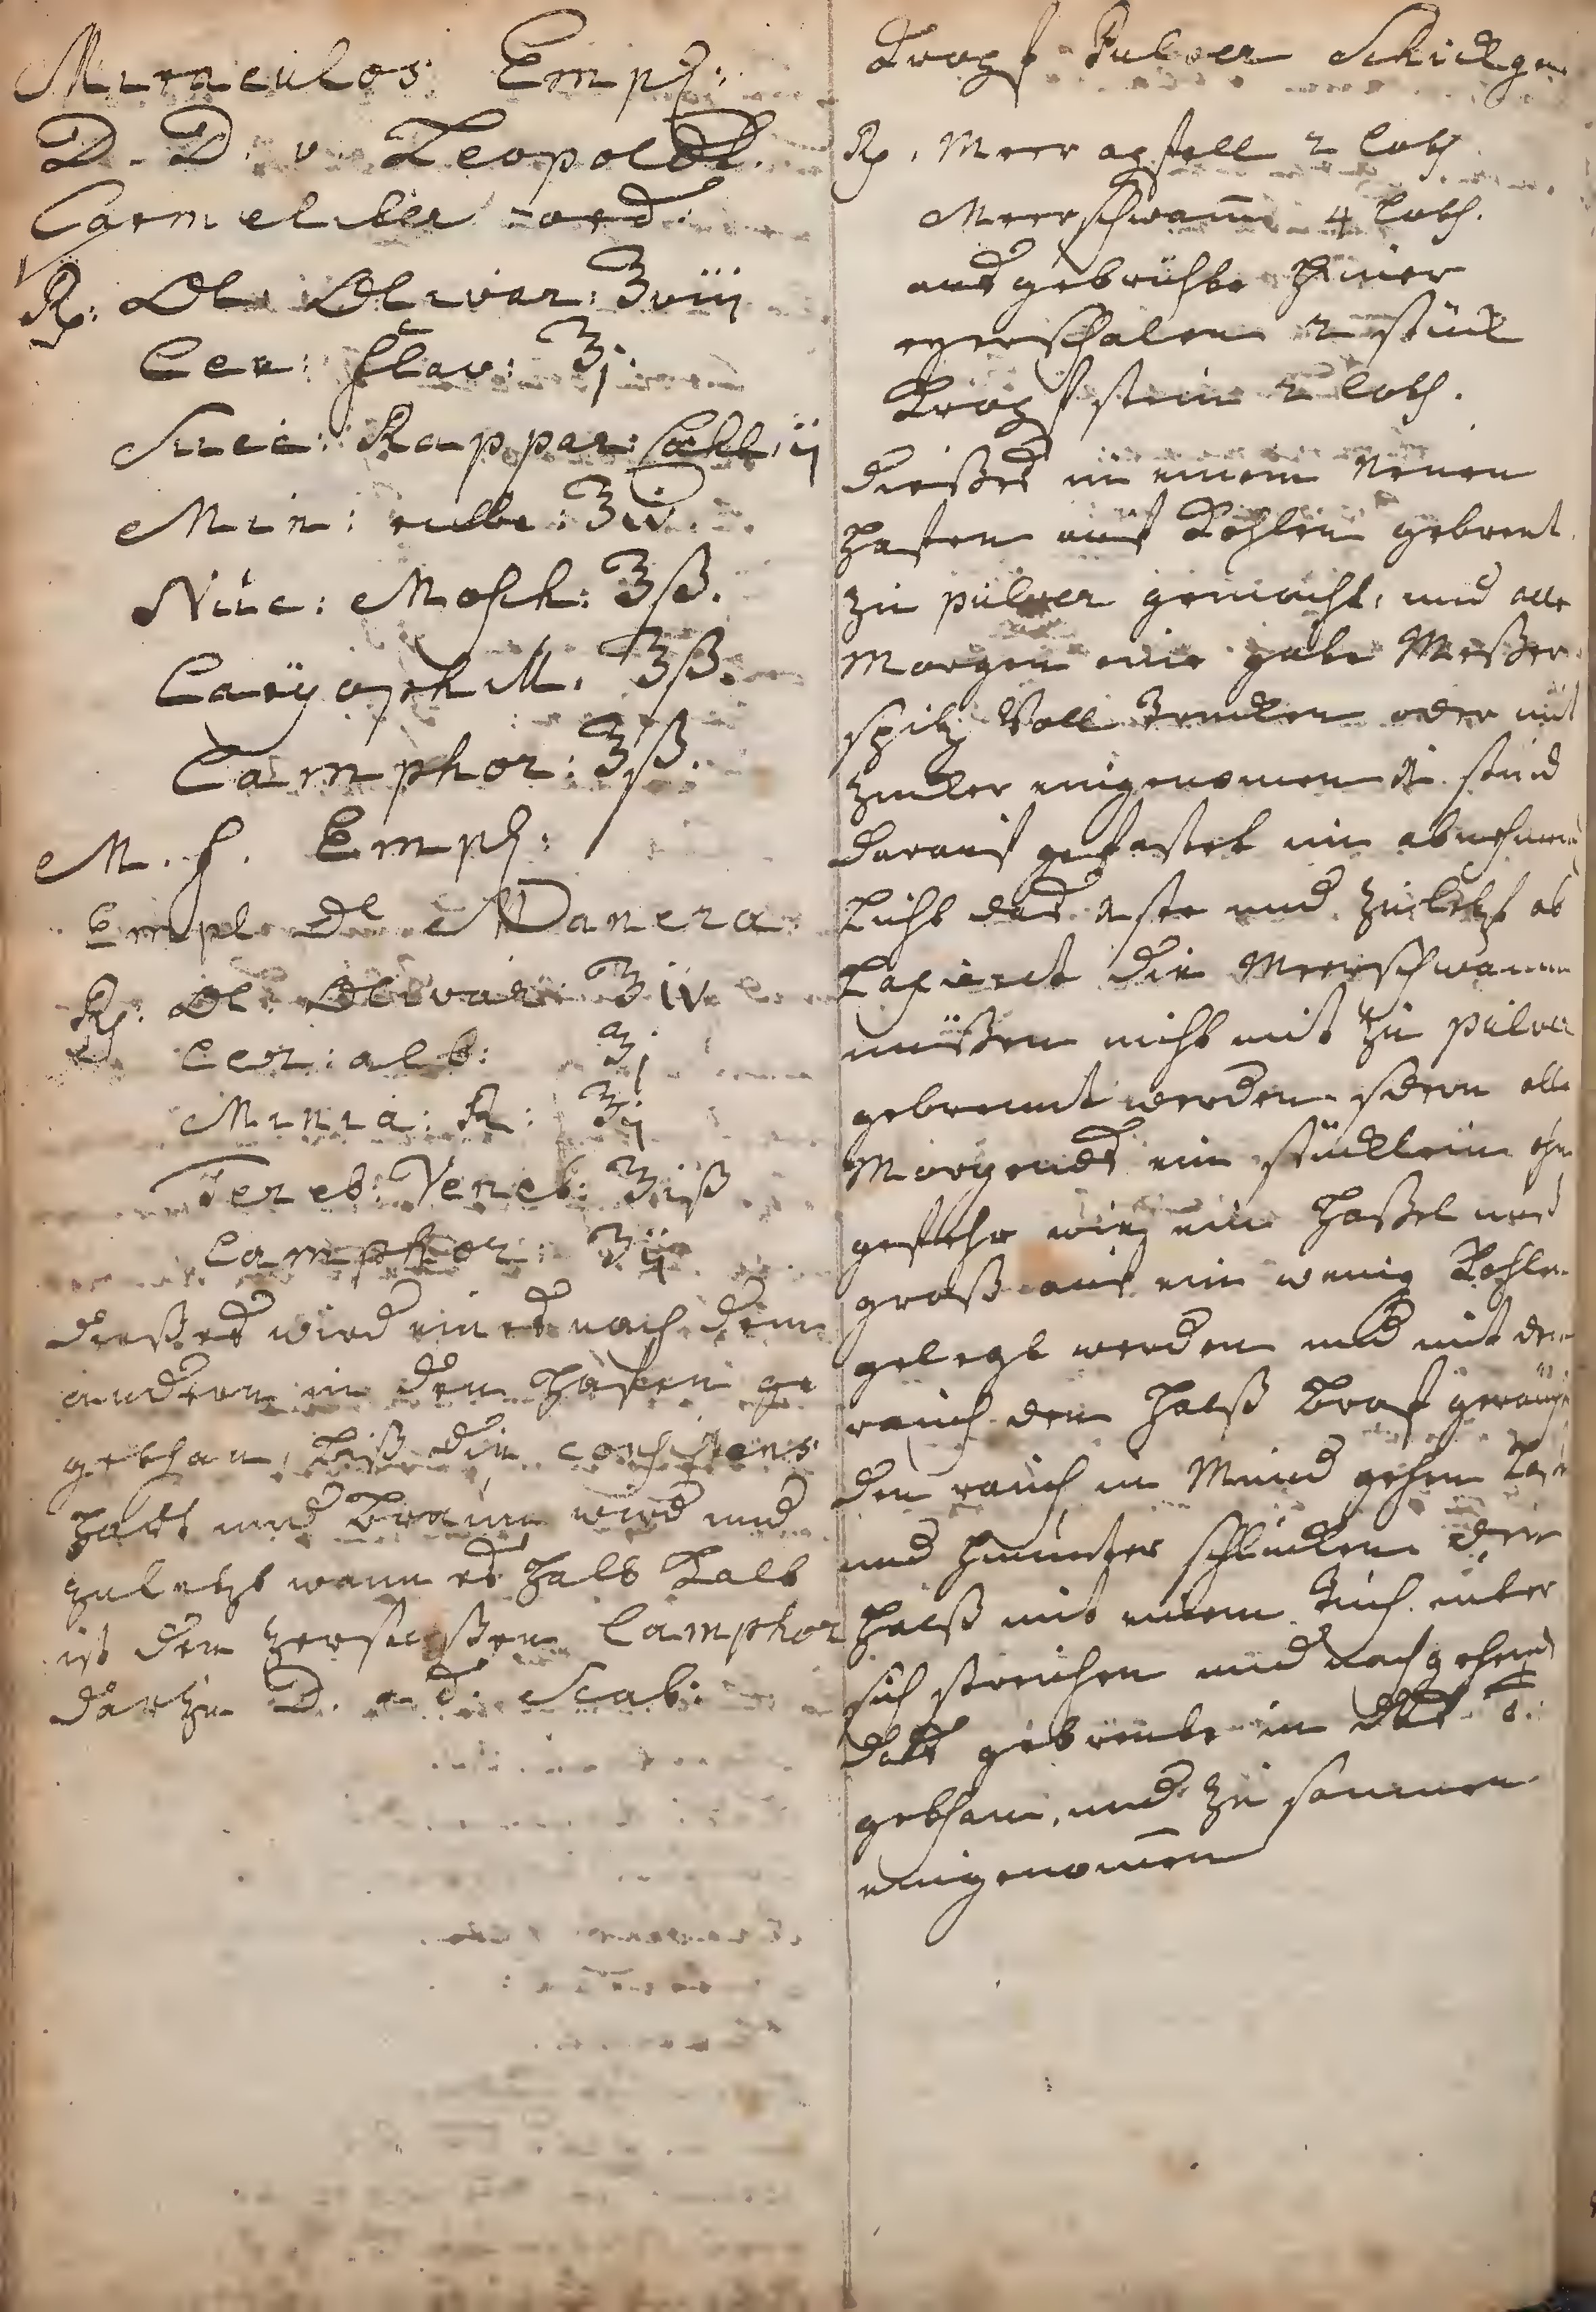 Miraculos Empl:
D. D. v. Leopoldt.
Carmeliter ord:
Rp. Ol. Olivar: ℥viij
Cer: flav: ℥j.
Succ: Rappar: Cochl: ij
Min: rubr: ℥iv.
Nuc: Mosch: ℥ß.
Caryophill. ℥ß.
Camphor: ℥ß.
M. f. Empl:
Empl de Manera
Rp. Ol. Olivar: ℥iv
Cer: alb: ℥j
Minia: R: ℥ij
Tereb: Venet: ℥iß
Camphor: ʒij
dießes wird eines nach dem
andern in den Hafen ge
gethan, biß die consistens
hatt und braun wird und
zuletzt wann es halb kalt
ist den zerstoßen Camphor
darzu D. ad. Scab:
Kropf Pulver Schick
Rp. Meer apfell 2 loth
Meerschwam̄ 4 loth.
ausgebrühte hüner
eyerschalen 2 stück
Kropfstein 2 loth.
dießes in einem Neuen
Hafen auf Kohlen gebrent.
zu pulver gemacht, und alle
Morgen eine halbe Meßer
spitz Voll Trucken oder mit
zucker eingenomen 1 stund
darauf gefastet im abnehmen
Licht das 1 ste und zuletzt ab
Laxierdt die Meerschwamm
müßen nicht mit zu pulver
gebrennt werden. sdern alle
Morgends ein stücklein ohn
gefehr wie ein Haßel nus
groß auf ein wenig Kohlen
gelegt werden und mit dem
rauch den Halß Kropf geräuch
den rauch in Mund gehen laß
und hinunter schlucken den
Halß mit einem Tuch unter
sich streichen und nachgehend
daß gebrente in das
gethan, und zu samen
eingenom̄en